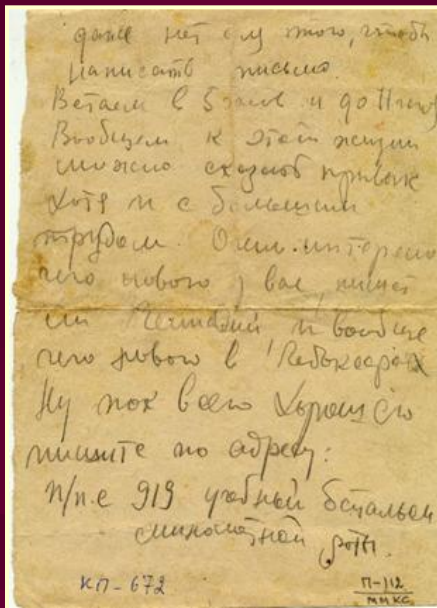 даже нет и у того, чтоб
написать письмо.
Встаем в 5 часов и до 11 ночи,
Вообщем к этой жизни
можно сказать привык
хотя и с большим
трудом. Очен. интересно
чего нового у вас, пишет
ли Геннадий и вообще
чего нового в Чебоксарах
Ну пок всего хорошего
пишите по адресу:
п/п.с 919 учебный батальон
минометной роты.
КП-672
П-112
ММКС